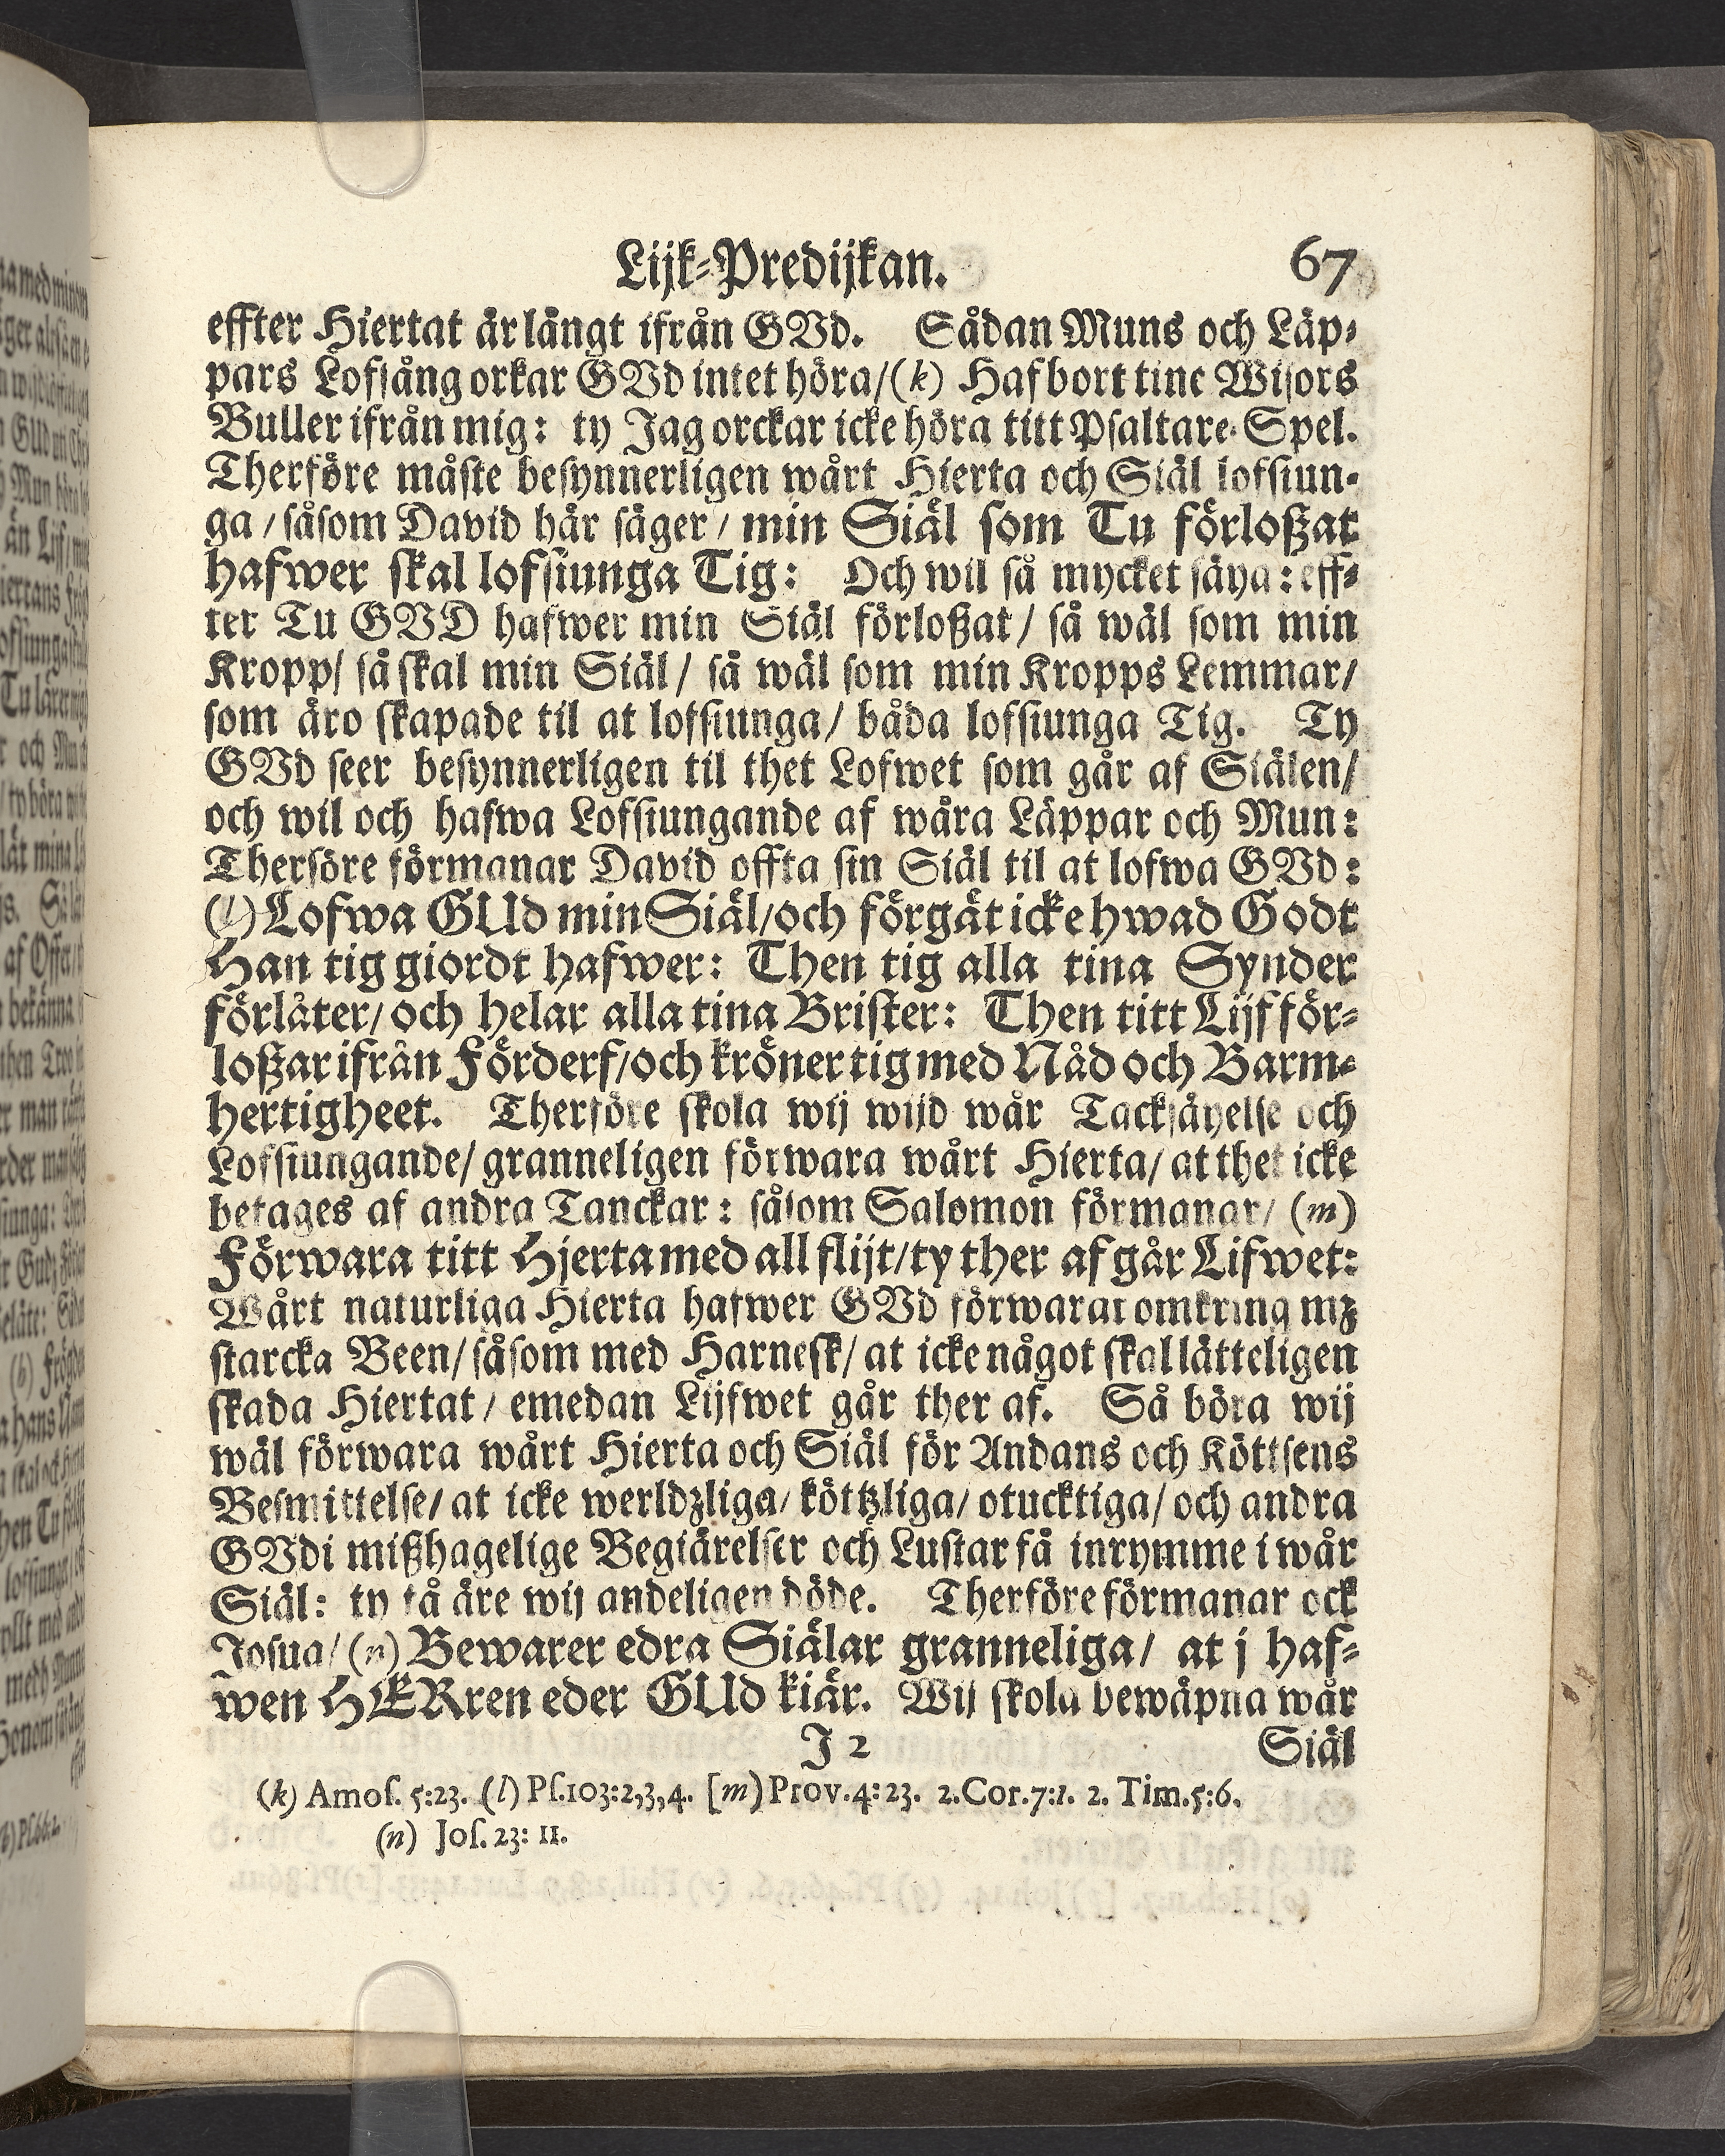 Lijk-Predijkan. 67
effter Hiertat är långt ifrån GVd. Sådan Muns och Läp-
pars Lofsång orkar GVd intet höra/(k) Haf bort tine Wisors
Buller ifrån mig: ty Jag orckar icke höra titt Psaltare-Spel.
Therföre måste besynnerligen wårt Hierta och Siäl lofsiun-
ga/ såsom David här säger/ min Siäl som Tu förloßat
hafwer skal lofsiunga Tig: Och wil så mycket säya: eff-
ter Tu GVD hafwer min Siäl förloßat/ så wäl som min
Kropp/ så skal min Siäl/ så wäl som min Kropps Lemmar/
som äro skapade til at lofsiunga/ båda lofsiunga Tig. Ty
GVd seer besynnerligen til thet Lofwet som går af Siälen/
och wil och hafwa Lofsiungande af wåra Läppar och Mun:
Therföre förmanar David offta sin Siäl til at lofwa GVd:
(l) Lofwa GUd min Siäl/och förgät icke hwad Godt
Han tig giordt hafwer: Then tig alla tina Synder
förlåter/ och helar alla tina Brister: Then titt Lijf för-
loßar ifrån Förderf/och kröner tig med Nåd och Barm-
hertigheet. Therföre skola wij wijd wår Tacksäyelse och
Lofsiungande/ granneligen förwara wårt Hierta/ at thet icke
betages af andra Tanckar: såsom Salomon förmanar/ (m)
Förwara titt Hjerta med all flijt/ty ther af går Lifwet:
Wårt naturliga Hierta hafwer GVd förwarat omkring mz
starcka Been/ såsom med Harnesk/ at icke något skal lätteligen
skada Hiertat/ emedan Lijfwet går ther af. Så böra wij
wäl förwara wårt Hierta och Siäl för Andans och Köttsens
Besmittelse/ at icke werldzliga/ köttzliga/ otucktiga/ och andra
GVdi mißhagelige Begiärelser och Lustar få inrymme i wår
Siäl: ty tå äre wij andeligen döde. Therföre förmanar ock
Josua/ (n) Bewarer edra Siälar granneliga/ at j haf-
wen HERren eder GUd kiär. Wij skola bewäpna wår
J 2 Siäl
(k) Amos. 5:23. (l) Ps.103:2,3,4. [m) Prov.4:23. 2.Cor.7:1. 2. Tim.5:6.
(n) Jos. 23: 11.